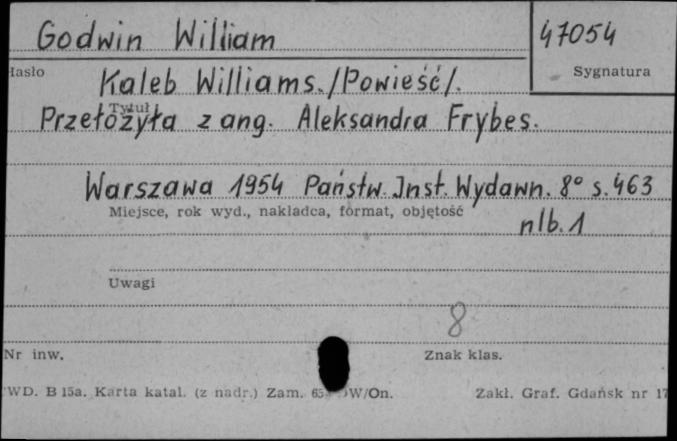 Godwin William
47054
Hasło
Sygnatura
Kaleb Williams./Powieść/.
Tytuł
Przełożyła z ang. Aleksandra Frybes.
Warszawa 1954 Państw. Inst. Wydawn. 8° s. 463
Miejsce, rok wyd., nakładca, format, objętość
nlb. 1
Uwagi
8
Nr inw.
Znak klas.
WD. B 15a. Karta katal. (z nadr.) Zam. W/On.
Zakł. Graf. Gdańsk nr 17